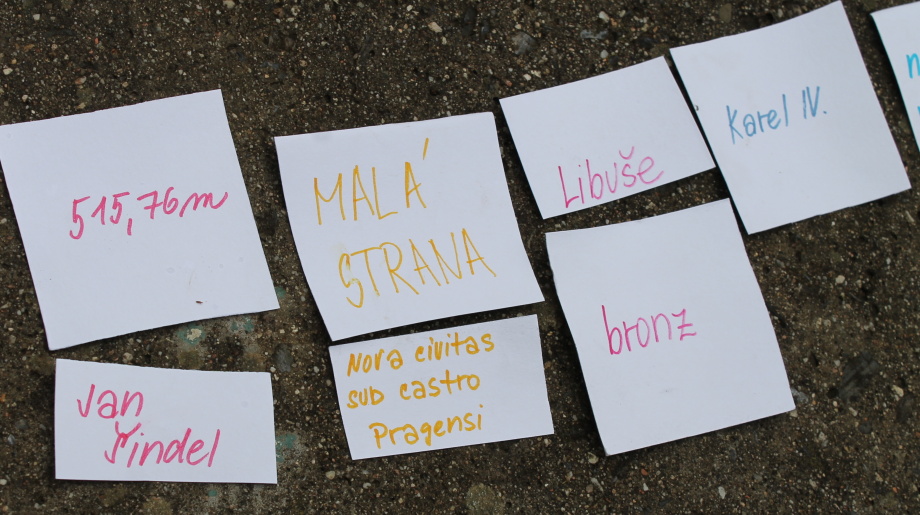 515,76m
Jan
Šindel
MALÁ
STRANA
Nova civitas
sub castro
Pragensi
Libuše
bronz
Karel IV.
n